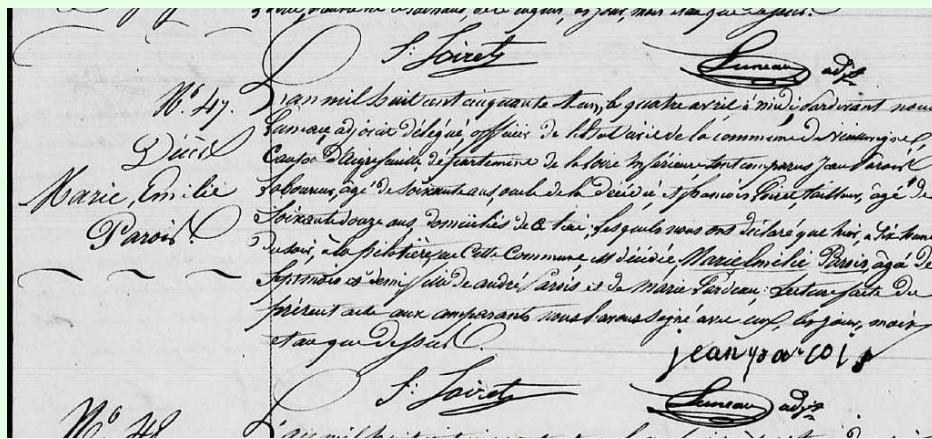 jour, mois et an que dessus.
f. Loiret
Luneau adjt
N° 47.
Décès
Marie, Emilie
Parois.
L'an mil huit cent cinquante et un, le quatre avril à midi pardevant nous
Luneau adjoint délégué officier de l'état civil de la commune de
Canton d'Aigrefeuille, département de la loire inférieure sont comparus jean Parois
laboureur, âgé de soixante ans, oncle de la décédée, et françois Loiret tailleur, âgé de
soixante douze ans, domiciliés de ce lieu, lesquels nous ont déclaré que hier, à six heures
du soir, à la en cette Commune est décédée, Marie Emilie Parois, âgée de
sept mois et demi fille de andré Parois et de marie Pardeau; Lecture faite du
présent acte aux comparants nous l'avons signé avec eux, les jour, mois
et an que dessus.
jean parois
f. Loiret
Luneau adjt
N° 48
L'an mil huit cent cinquante et un